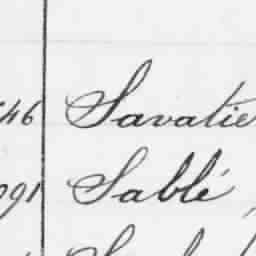 46 Savatie
91 Sablé,